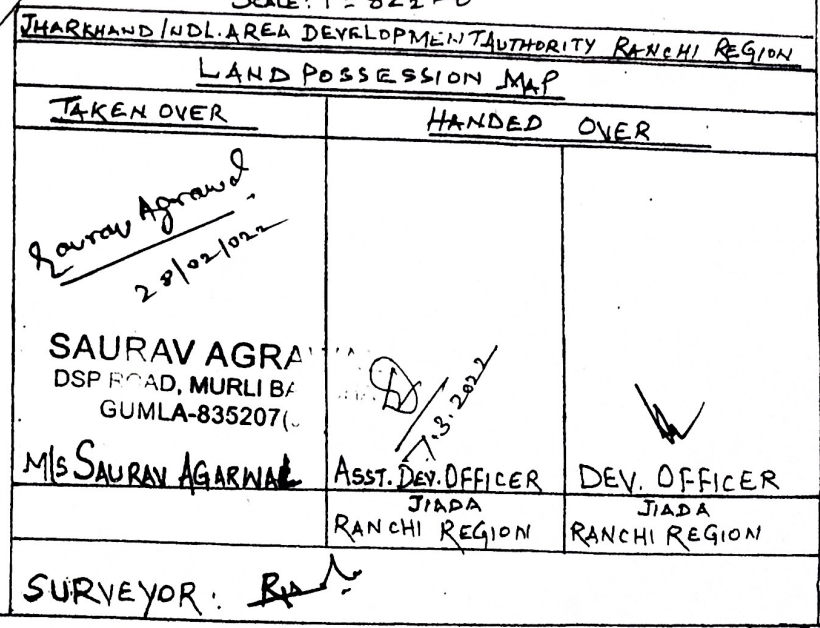 JHARKHAND INDL. AREA DEVELOPMENT AUTHORITY RANCHI REGION
LAND POSSESSION MAP
TAKEN OVER
HANDED OVER
Saurav Agrawal
28/02/022
SAURAV AGRA
DSP ROAD, MURLI BA
GUMLA-835207(
M/s SAURAV AGARWAL
7.3.2022
ASST. DEV. OFFICER
JIADA
RANCHI REGION
DEV. OFFICER
JIADA
RANCHI REGION
SURVEYOR: